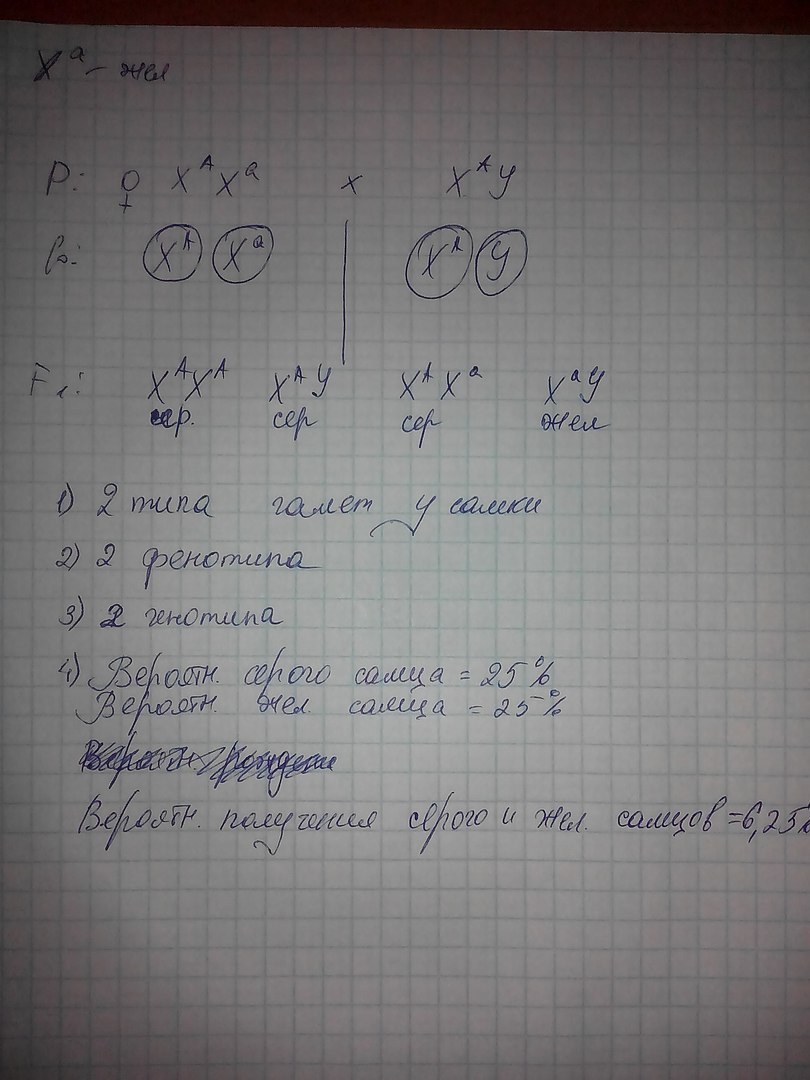 Xᵃ – жел
P: ♀ XᴬXᵃ x XᴬY
G: Xᴬ Xᵃ Xᴬ Y
F₁: XᴬXᴬ XᴬY XᴬXᵃ XᵃY
сер. сер сер жел
1) 2 типа гамет у самки
2) 2 фенотипа
3) 2 генотипа
4) Вероятн. серого самца = 25%
Вероятн. жел. самца = 25%
Вероятн. получения серого и жел. самцов = 6,25%